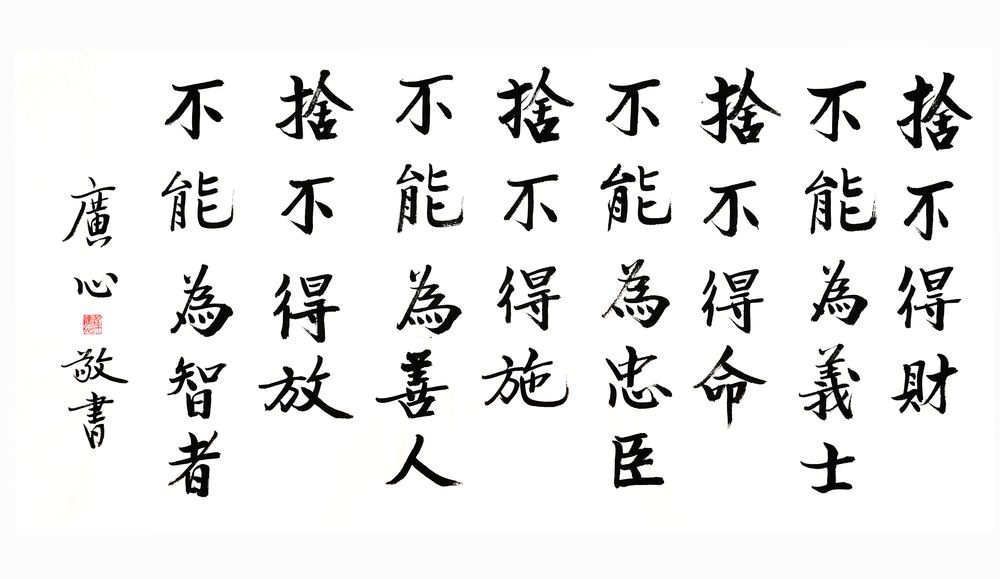 捨不得財
不能為義士
捨不得命
不能為忠臣
捨不得施
不能為善人
捨不得放
不能為智者
廣心敬書